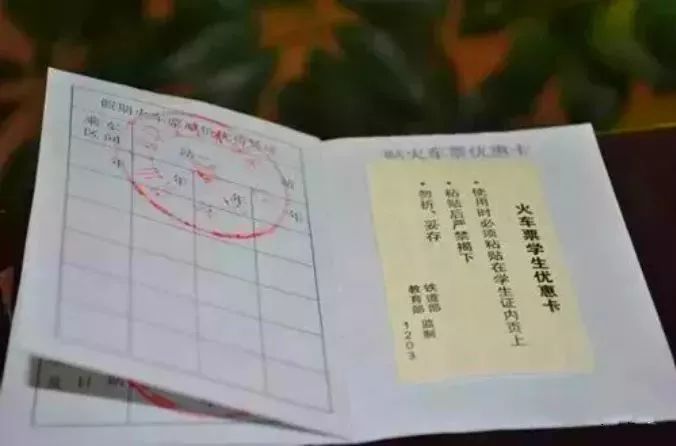 假期火车票减价优待凭证
乘车
区间
站
站
年
年
年
年
贴火车票优惠卡
火车票学生优惠卡
• 使用时必须粘贴在学生证内页上
• 粘贴后严禁揭下
• 勿折、妥存
铁道部
教育部
监制
1203